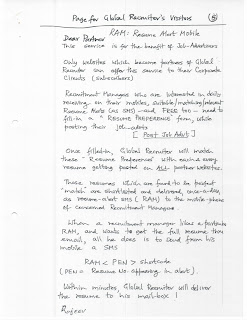 Page for Global Recruiter's Visitors
RAM: Resume Alert Mobile
Dear Partner
This service is for the benefit of Job-Advertisers
Only websites which become partners of Global
Recruiter can offer this service to their Corporate
Clients (Subscribers)
Recruitment Managers who are interested in daily
receiving, on their mobiles, suitable/matching/relevant
Resume Alerts (as SMS) - and, FREE too - need to
fill-in a "RESUME PREFERENCE" form, while
posting their job-adverts
[Post Job Advt]
Once filled-in, Global Recruiter will match
these "Resume Preferences" with each & every
resume getting posted on ALL partner websites.
Those resumes which are found to be perfect
match are shortlisted and delivered once-a-day,
as resume-alert SMS (RAM) to the mobile-phone
of concerned Recruitment Managers.
When a recruitment manager likes a particular
RAM, and wants to get the full resume thru
email, all he does is to send from his
mobile a SMS
RAM < PEN > Shortcode
(PEN = Resume No. Appearing in alert).
Within minutes, Global Recruiter will deliver
the resume to his mail-box!